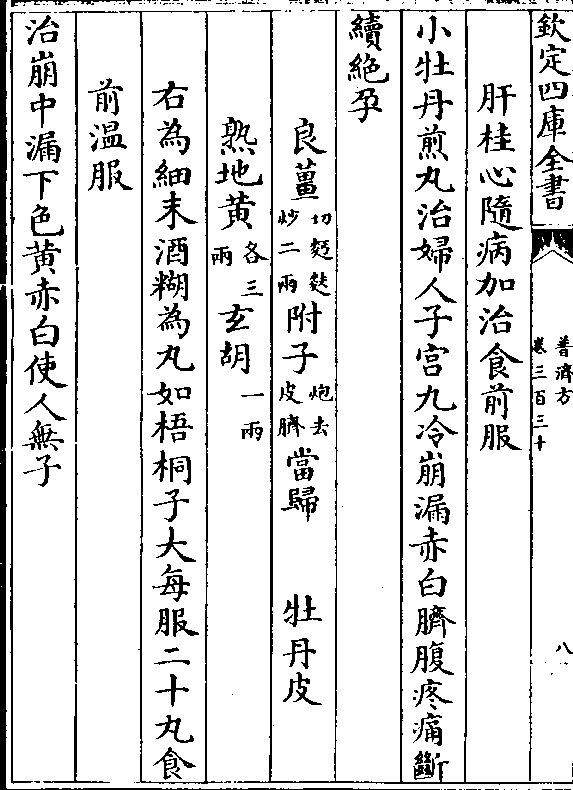 欽定四庫全書
普濟方
卷三百三十
八
肝桂心隨病加治食前服
小牡丹煎丸治婦人子宫九冷崩漏赤白臍腹疼痛斷
續絶孕
良薑切麫麩炒二兩附子炮去皮臍當歸 牡丹皮
熟地黄各三兩玄胡一兩
右為細末酒糊為丸如梧桐子大每服二十丸食
前温服
治崩中漏下色黄赤白使人無子